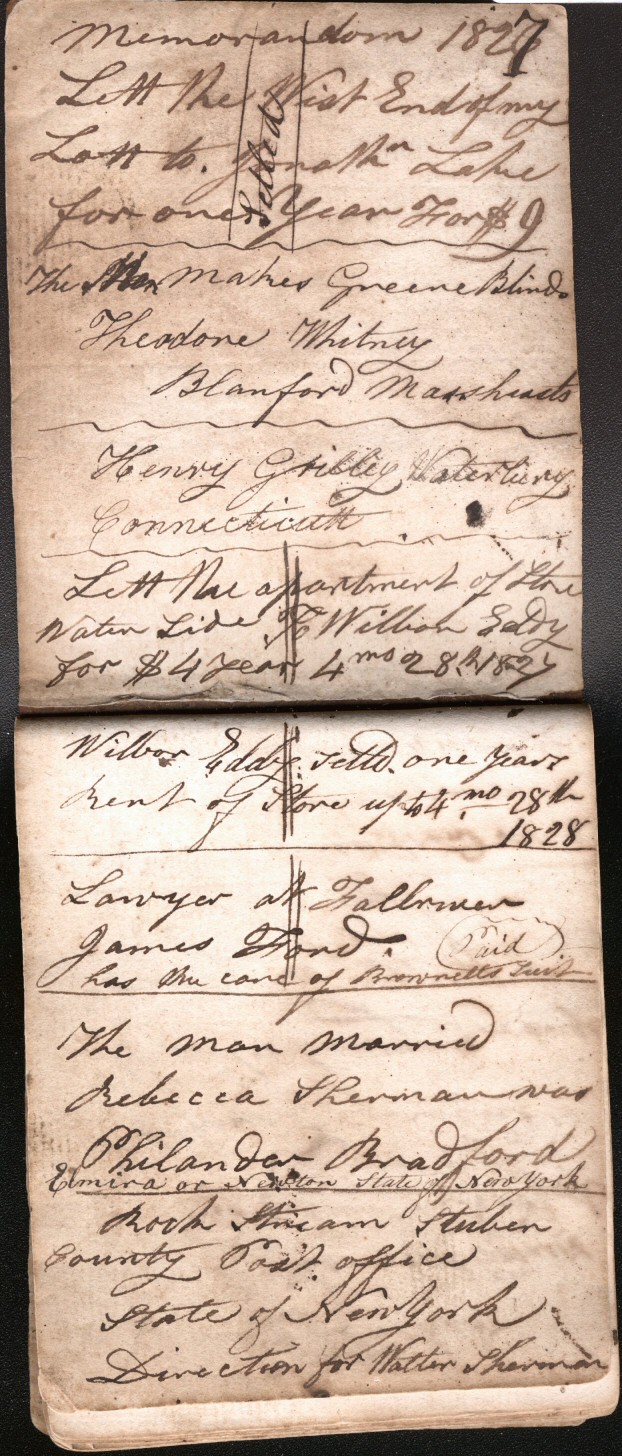 Memorandom 1827
Lett the West End of my
Lott to. Jonathn Lake
for one Year For $ 9
Settled
The Man makes Greene Blinds
Theodore Whitney
Blanford Masshusts
Henry Grilley Waterbury
Connecticutt
Lett the apartment of Store
Water Side To Wilbor Eddy
for $4 year 4mo 28th 1827
Wilbor Eddy settd. one years
Rent of Store up to 4mo 28th
1828
Lawyer at Fallriver
James Ford. Paid
has the care of Brownells Suit
The man married
Rebecca Sherman was
Philander Bradford
Elmira or Newton State of New York
Rock Stream Stuben
County Post office
State of New York
Direction for Walter Sherman